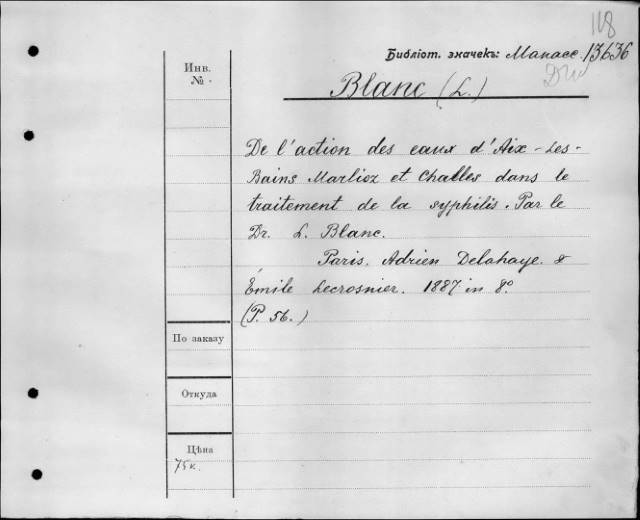 118
Библіот. значекъ: Манасс. 13636
Инв.
№
Blanc (L.)
De l'action des eaux d'Aix-Les-
Bains Marlioz et Challes dans le
traitement de la syphilis. Par le
Dr. L. Blanc.
Paris. Adrien Delahaye &
Émile Lecrosnier. 1887 in 8°
(P. 56.)
По заказу
Откуда
Цѣна
75 к.